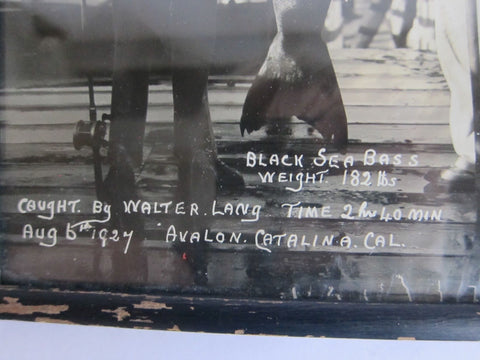 BLACK SEA BASS
WEIGHT. 182 lbs
CAUGHT. By WALTER. LANG TIME 2 hr 40 MIN
Aug 6th 1927 AVALON. CATALINA. CAL.